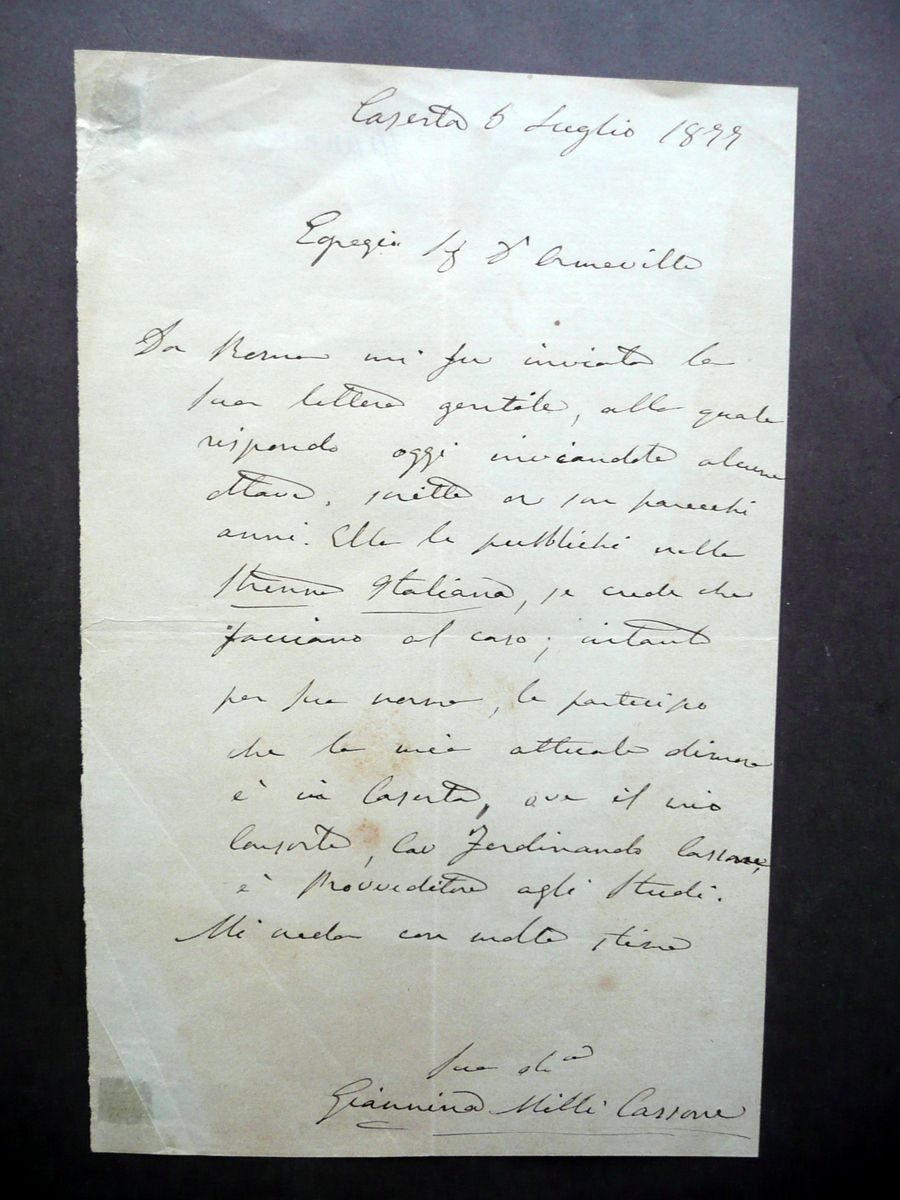 Caserta 6 Luglio 1877
Egregio Sig D'Ormeville
Da Roma mi fu inviata la
sua lettera gentile, alla quale
rispondo oggi inviandole alcune
ottave, scritte or son parecchi
anni. Ella le pubblichi nella
Strenna Italiana, se crede che
facciano al caso; intanto
per sua norma, le partecipo
che la mia attuale dimora
è in Caserta, ove il mio
Consorte, Cav Ferdinando Cassone,
è Provveditore agli Studi.
Mi creda con molta stima
Sua
Giannina Milli Cassone